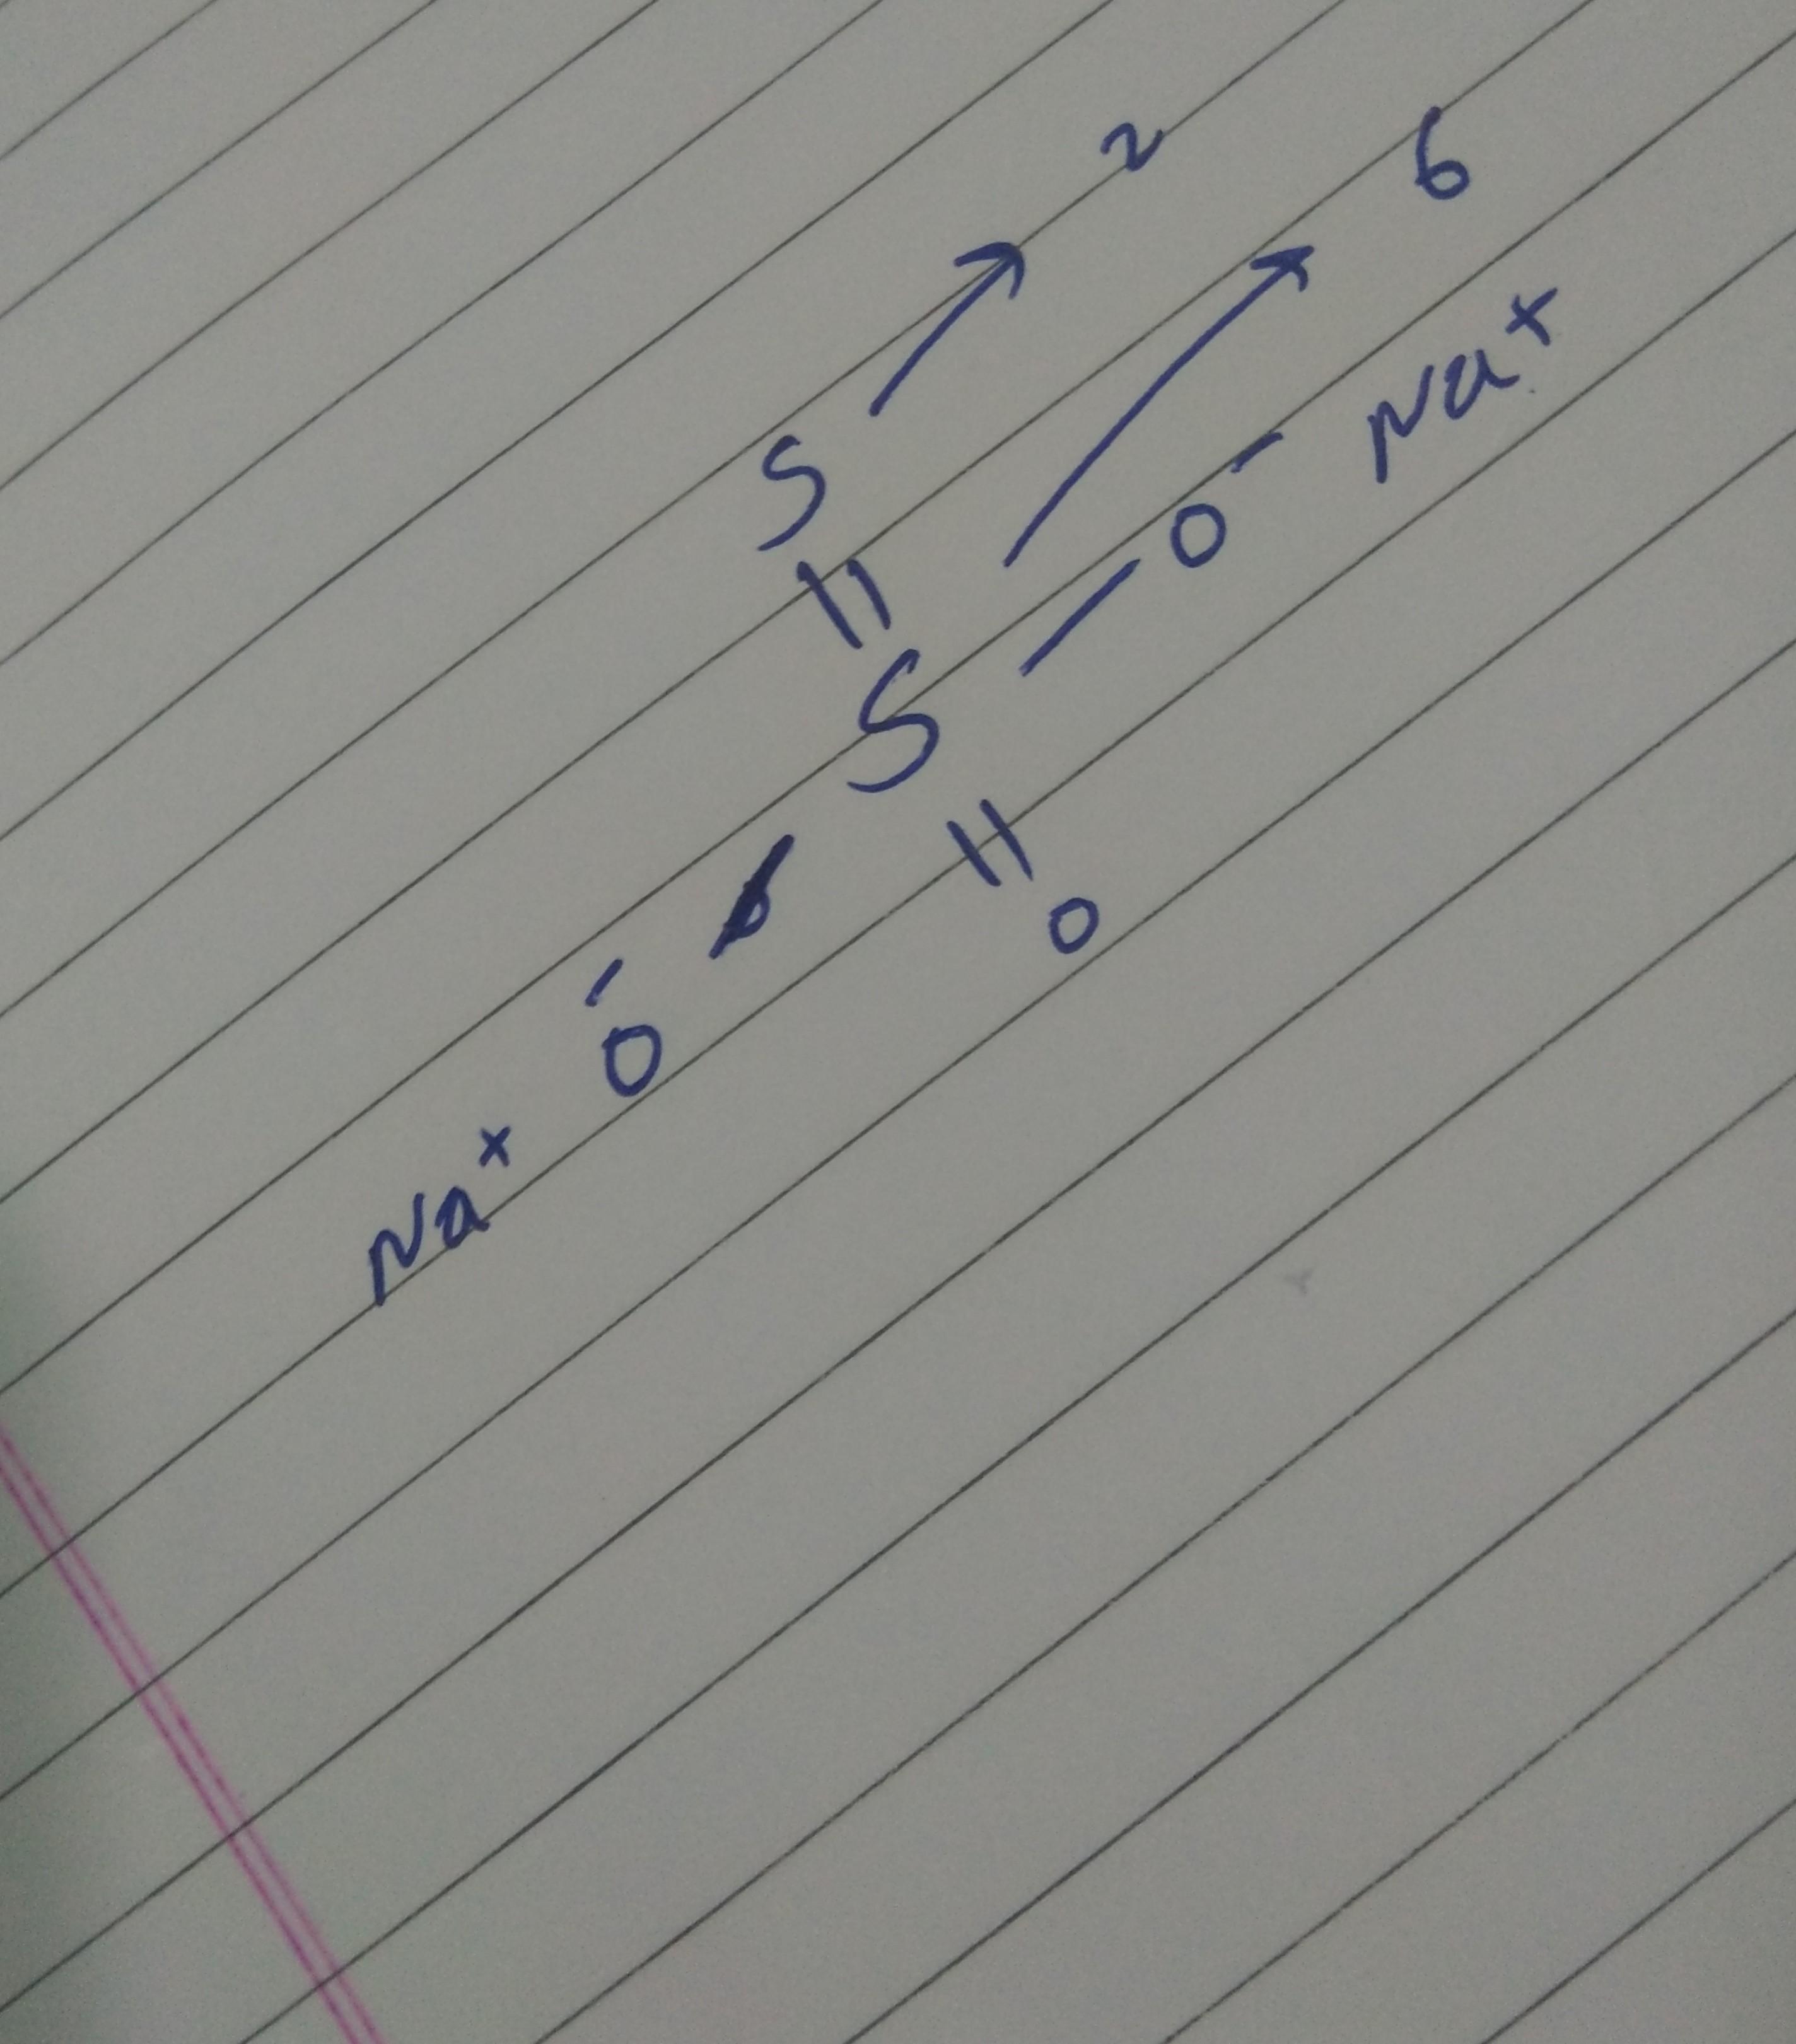 2
6
S
S
O⁻ Na⁺
=
O
Na⁺ O⁻